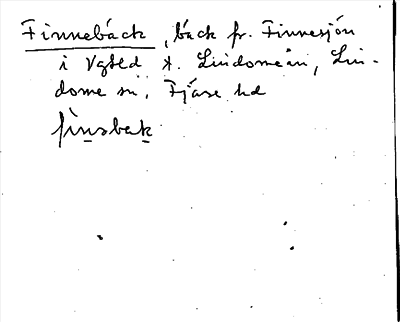 Finnebäck, bäck fr. Finnesjön
i Vgtld t. Lindomeån, Lin-
dome sn, Fjäre hd
fìnsbak